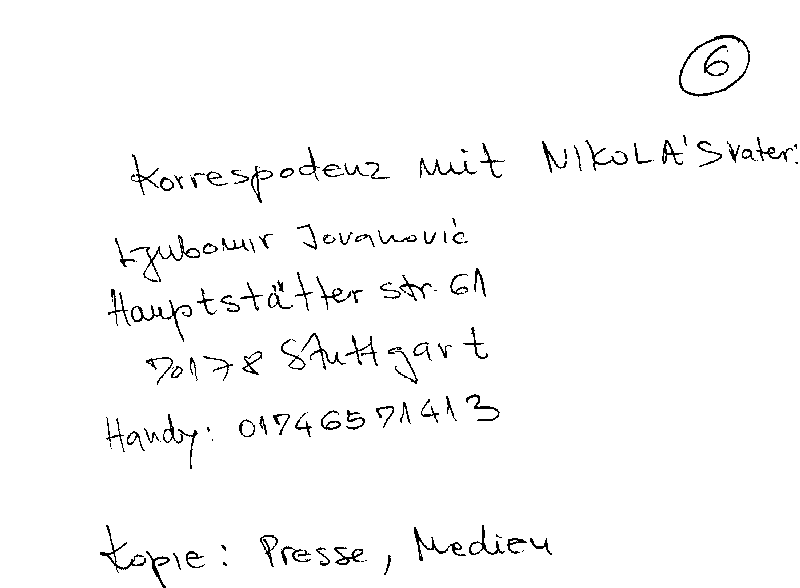 6
Korrespodenz mit NIKOLA'S vater:
Ljubomir Jovanović
Hauptstätter str. 61
70178 Stuttgart
Handy: 01746571413
Kopie: Presse, Medien